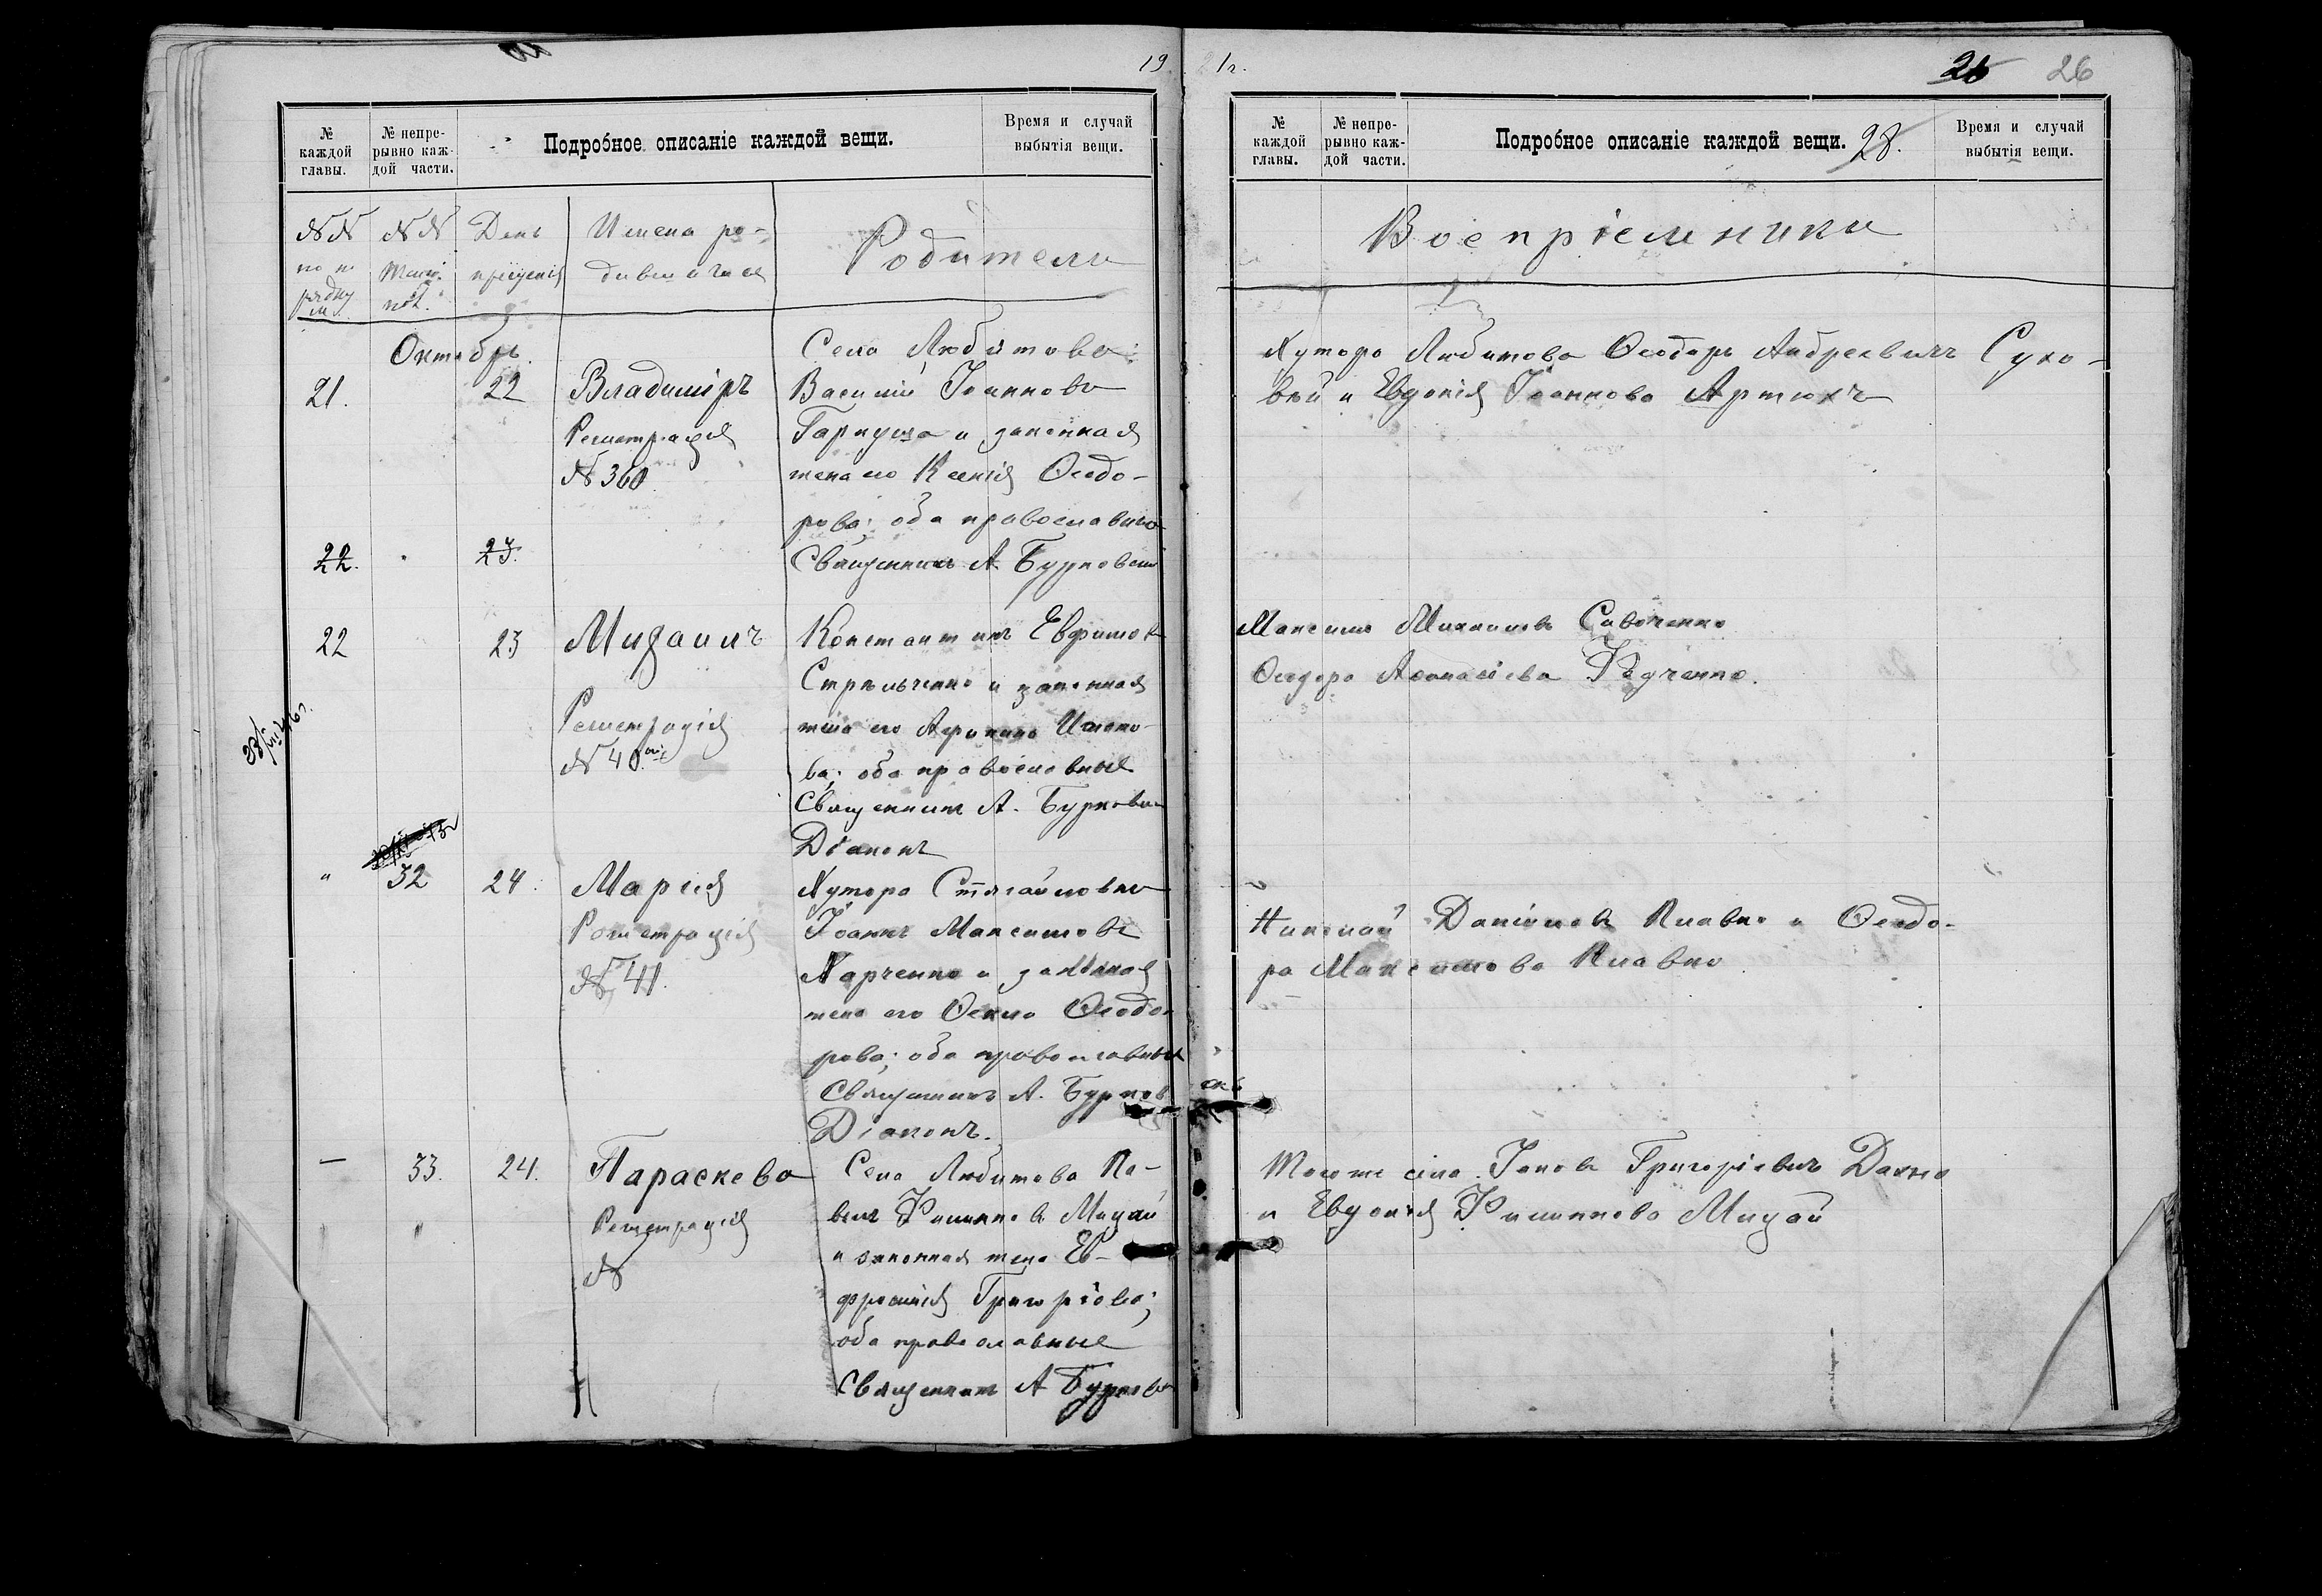 19
№ каждой главы.
№ непре-рывно каж-дой части.
Подробное описаніе каждой вещи.
Время и случай выбытія вещи.
№№ по по рядку м
№№ женс. пол.
День крещенія
Имена ро-
дившихся
Родители
Октябрь.
21.
22
Владиміръ
Регистрація
№ 360
Село Любимово:
Василій Іоанновъ
Гаркуша и законная
жена его Ксенія Ѳеодо-
рова; оба православные
Священникъ А Бурковскій
22.
23.
22
23
Михаилъ
Регистрація
№ 40
Константинъ Евфимов
Стрельченко и законная
жена его
ва; оба православные
Священникъ А. Бурковск
Діаконъ
"
32
24.
Марія
Регистрація
№ 41.
Хутора
Іоаннъ Максимовъ
Харченко и законная
жена его Ѳекла Ѳеодо-
рова; оба православные
Священникъ А. Бурков
скій
Діаконъ.
—
33.
24.
Параскева
Регистрація
№
"
Село Любимово Па-
велъ Филипповъ Мицай
и законная жена Ев-
фросинія Григоріева;
оба православные
Священникъ А Бурковс
21г.
26
26
№ каждой главы.
№ непре-рывно каж-дой части.
Подробное описаніе каждой вещи.
28.
Время и случай выбытія вещи.
Воспріемники
Хутора Любимова Ѳеодоръ Андреевичъ Сухо-
вей и Евдокія Іоаннова Артюхъ
Максимъ Михаиловъ Савченко
Ѳеодора Аѳанасіева
Николай Даніиловъ Клавко и Ѳеодо-
ра Максимова Клавко
Того же села Іаковъ Григоріевичъ Дахно
и Евдокія Филиппова Мицай